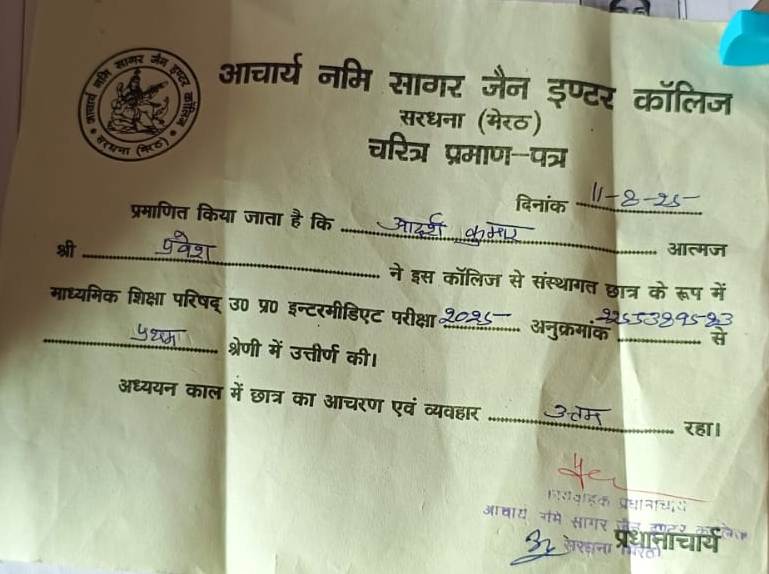 आचार्य नमि सागर जैन इण्टर कॉलिज
सरधना (मेरठ)
आचार्य नमि सागर जैन इण्टर कॉलिज
सरधना (मेरठ)
चरित्र प्रमाण-पत्र
दिनांक 11-8-25
प्रमाणित किया जाता है कि आदर्श कुमार आत्मज
श्री प्रवेश ने इस कॉलिज से संस्थागत छात्र के रूप में
माध्यमिक शिक्षा परिषद् उ० प्र० इन्टरमीडिएट परीक्षा 2025 अनुक्रमांक से
प्रथम श्रेणी में उत्तीर्ण की।
अध्ययन काल में छात्र का आचरण एवं व्यवहार उत्तम रहा।
कार्यवाहक प्रधानाचार्य
आचार्य नमि सागर जैन इण्टर कालिज
सरधना (मेरठ)
प्रधानाचार्य